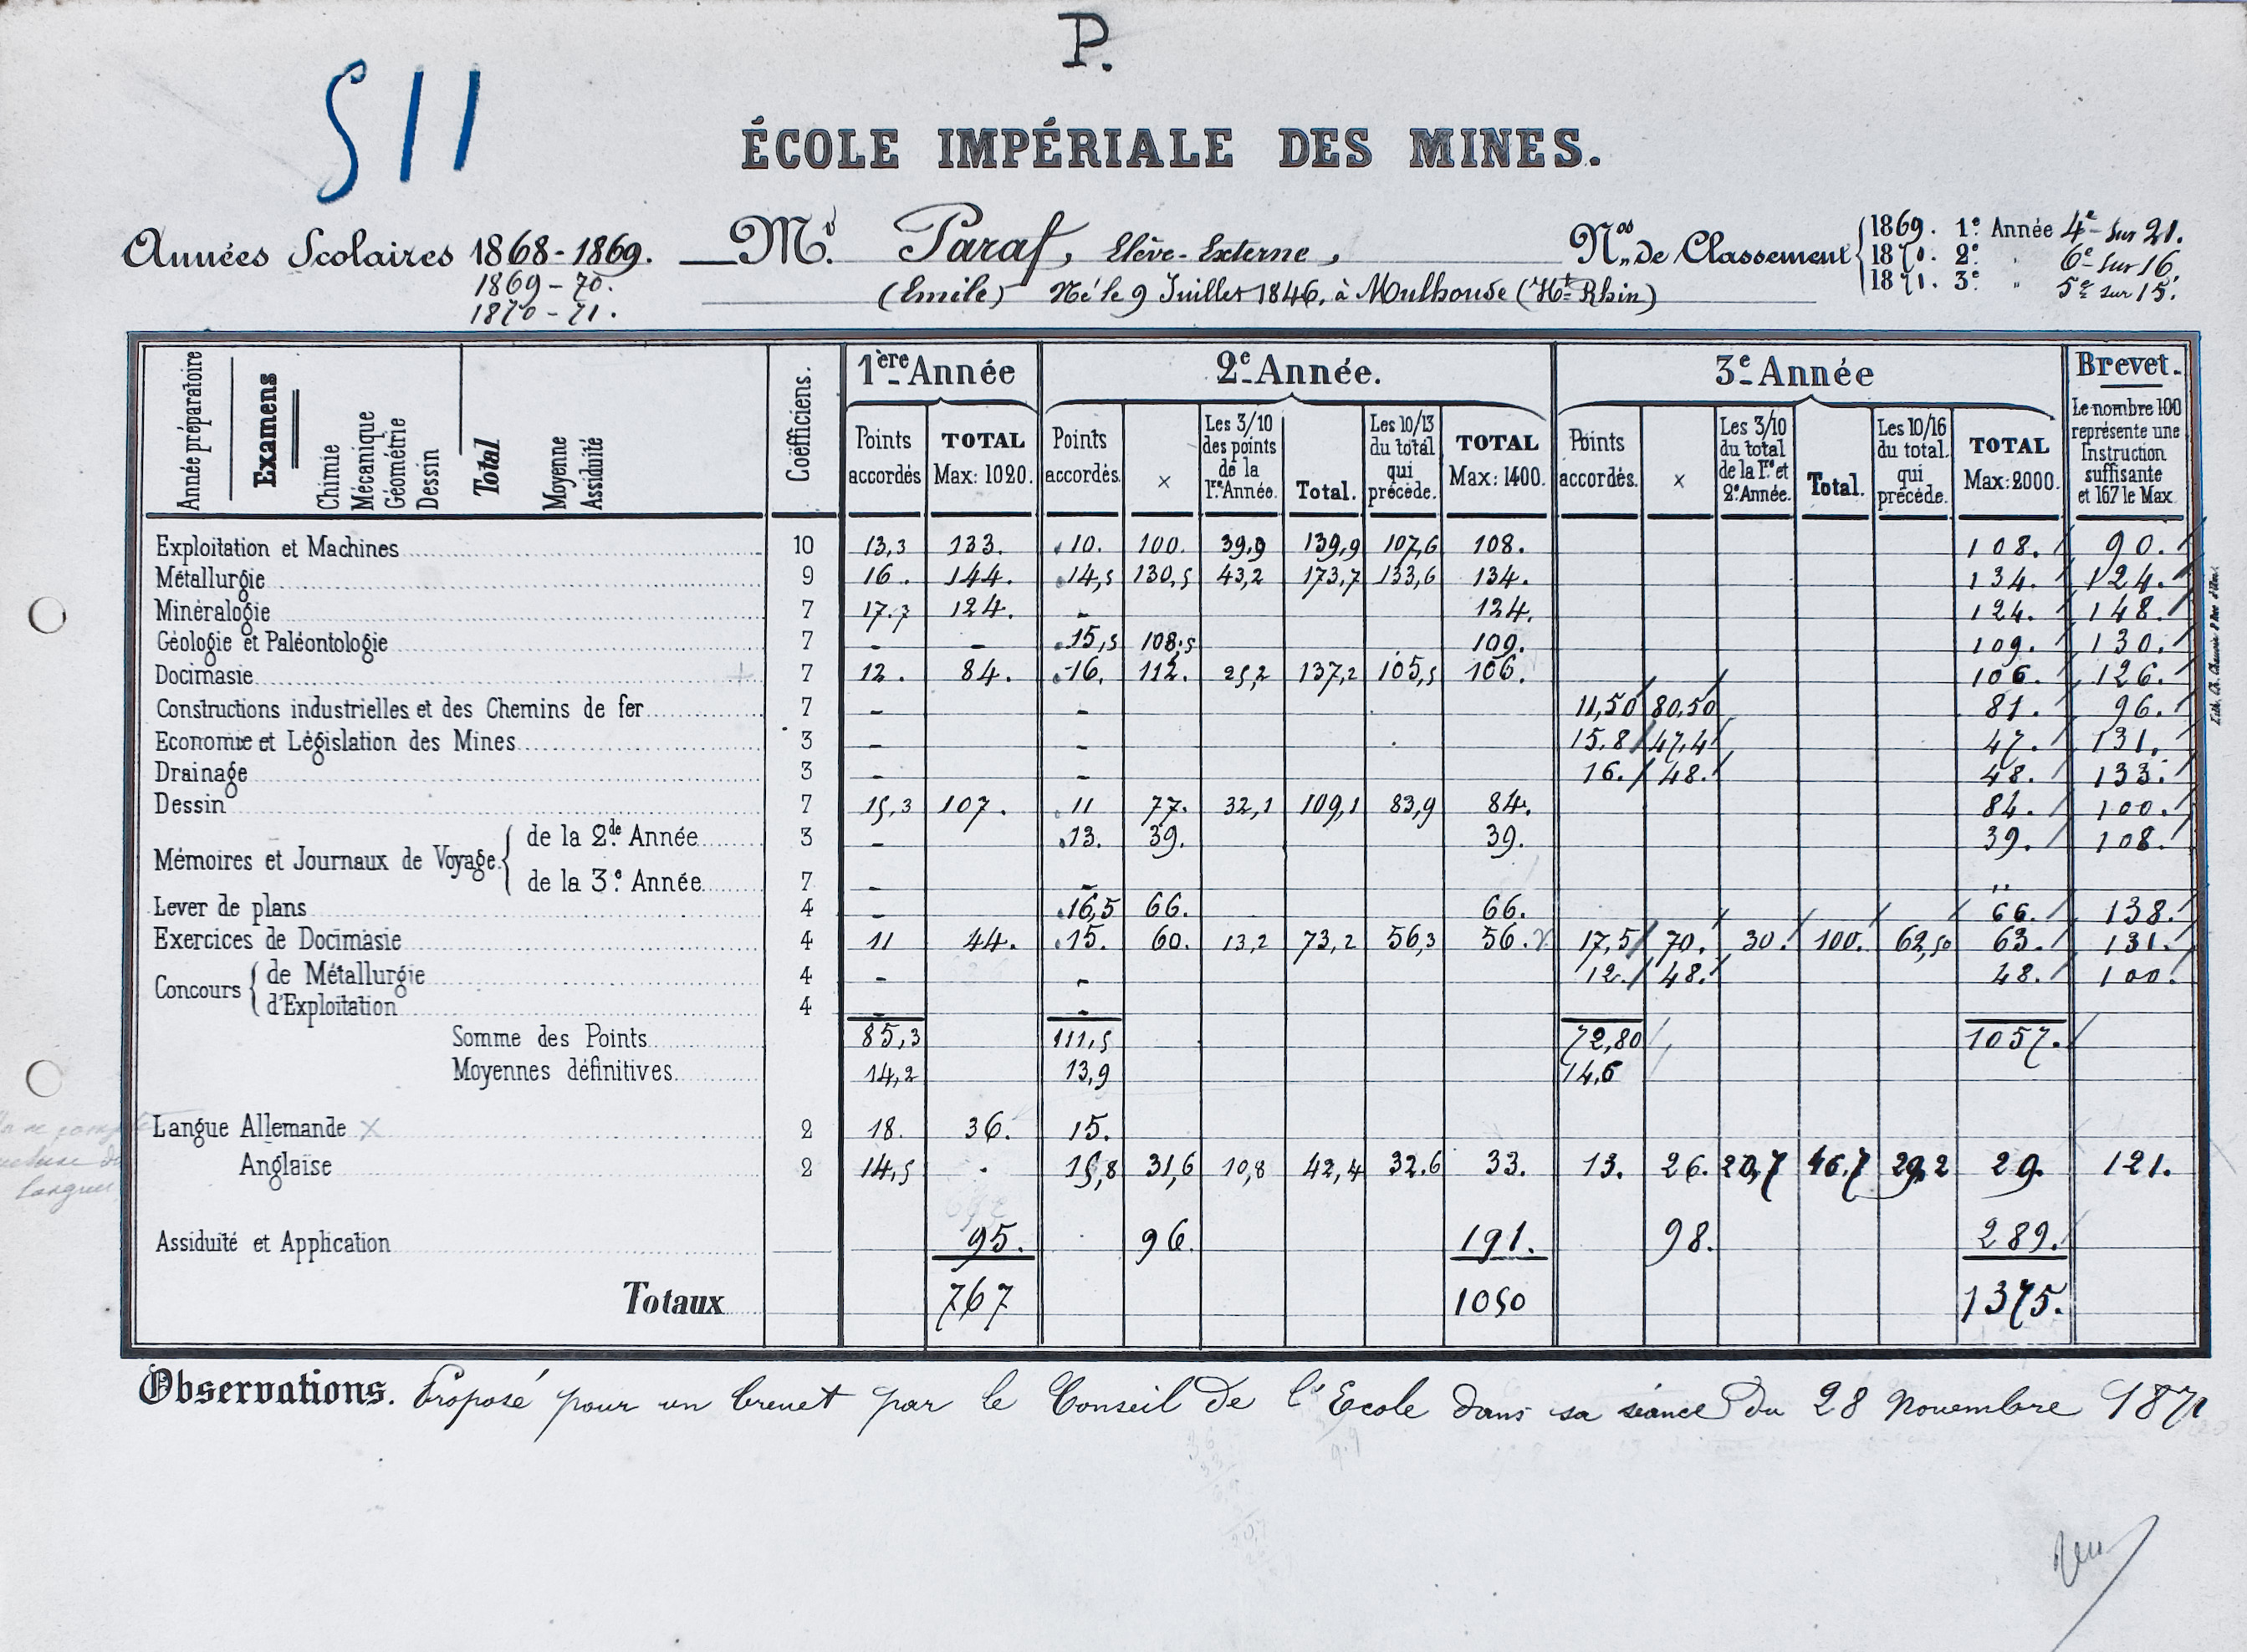 P.
S11
ÉCOLE IMPÉRIALE DES MINES.
Années Scolaires 1868-1869. Mr. Paraf, Elève-Externe, Nos de Classement 1869. 1e. Année 4e sur 21.
1869-70. (Emile) Né le 9 Juillet 1846, à Mulhouse (Ht Rhin) 1870. 2e. " 6e sur 16.
1870-71. 1871. 3e. " 5e sur 15.
Année préparatoire Examens Chimie Mécanique Géométrie Dessin Total Moyenne Assiduité Coëfficiens. 1ère Année 2e Année. 3e Année Brevet.
Points accordés TOTAL Max: 1020. Points accordés. × Les 3/10 des points de la 1re Année. Total. Les 10/13 du total qui précède. TOTAL Max: 1400. Points accordés. × Les 3/10 du total de la 1re et 2e Année. Total. Les 10/16 du total. qui précède. TOTAL Max: 2000. Le nombre 100 représente une Instruction suffisante et 167 le Max.
Exploitation et Machines 10 13,3 133. 10. 100. 39,9 139,9 107,6 108. 108. 90.
Métallurgie 9 16. 144. 14,5 130,5 43,2 173,7 133,6 134. 134. 124.
Minéralogie 7 17.7 124. - 124. 124. 148.
Géologie et Paléontologie 7 - - 15,5 108,5 109. 109. 130.
Docimasie 7 12. 84. 16. 112. 25,2 137,2 105,5 106. 106. 126.
Constructions industrielles et des Chemins de fer 7 - - 11,50 80,50 81. 96.
Economie et Législation des Mines 3 - - 15.8 47,4 47. 131.
Drainage 3 - - 16. 48. 48. 133.
Dessin 7 15,3 107. 11 77. 32,1 109,1 83,9 84. 84. 100.
Mémoires et Journaux de Voyage. de la 2de. Année 3 - 13. 39. 39. 39. 108.
de la 3e. Année 7 - - "
Lever de plans 4 - 16,5 66. 66. 66. 138.
Exercices de Docimasie 4 11 44. 15. 60. 13,2 73,2 56,3 56. 17,5 70. 30. 100. 62,50 63. 131.
Concours de Métallurgie 4 - - 12. 48. 48. 100.
d'Exploitation 4 - -
Somme des Points 85,3 111,5 72,80 1057.
Moyennes définitives. 14,2 13,9 14,6
Langue Allemande × 2 18. 36. 15.
Anglaise 2 14,5 . 15,8 31,6 10,8 42,4 32.6 33. 13. 26. 20,7 46.7 29,2 29. 121.
Assiduité et Application 95. 96. 191. 98. 289.
Totaux 767 1050 1375.
Observations. Proposé pour un brevet par le Conseil de l'Ecole dans sa séance du 28 Novembre 1871